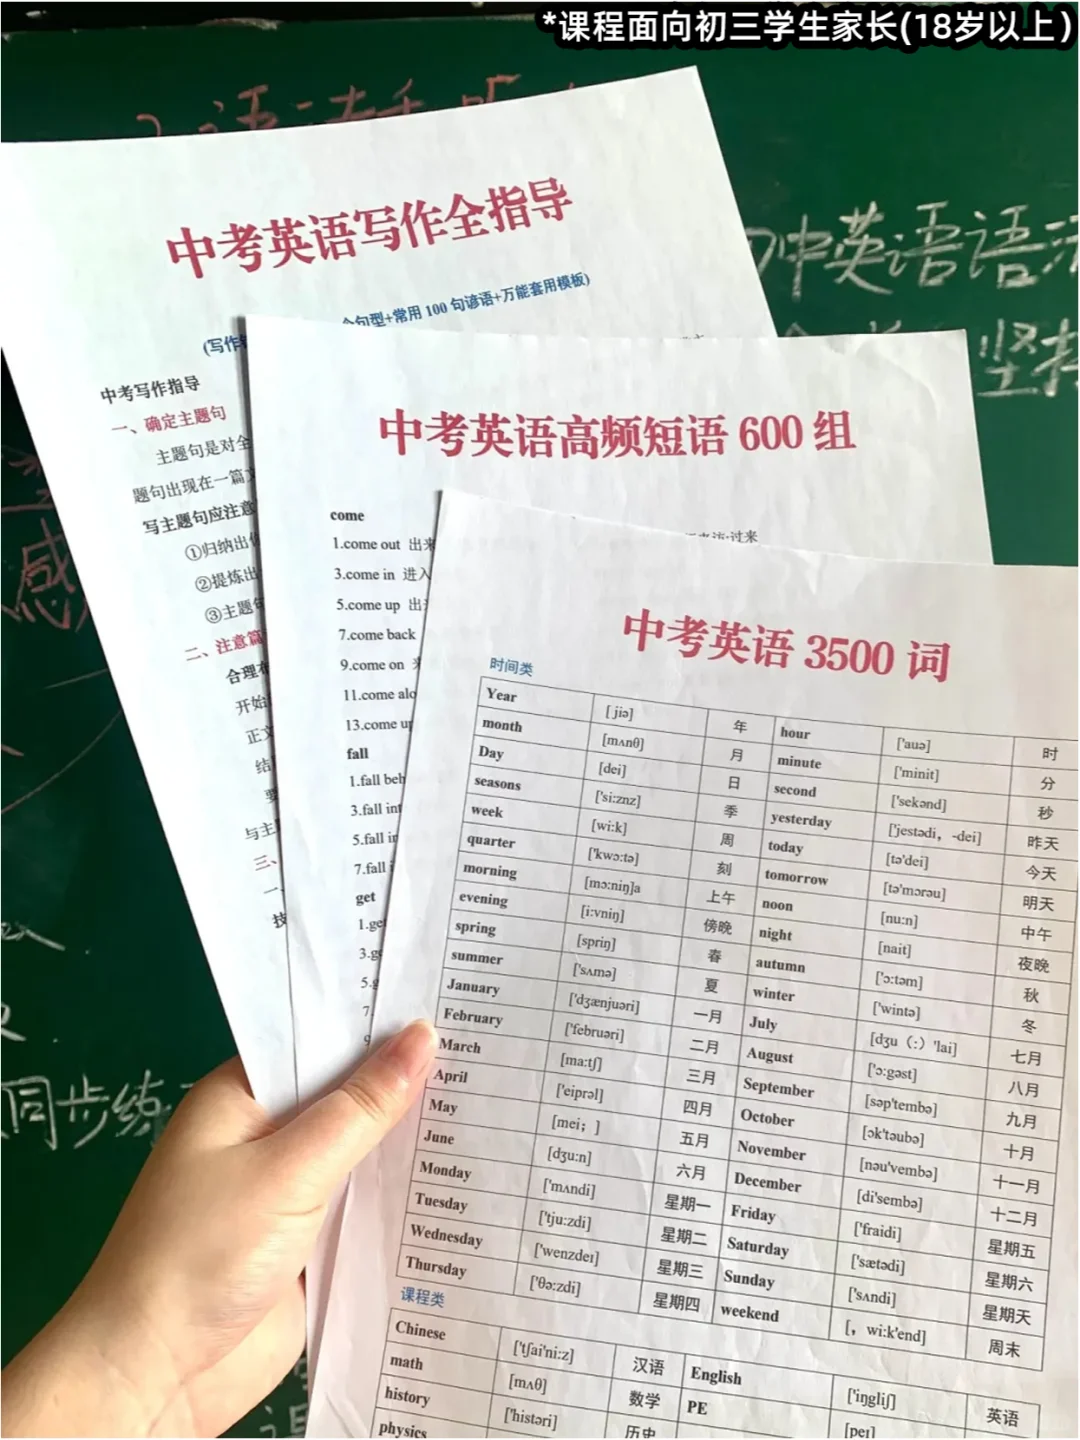 *课程面向初三学生家长(18岁以上)
中考英语写作全指导
句型+常用100句谚语+万能套用模板)
(写作
中考写作指导
一、确定主题句
主题句是对全
题句出现在一篇
写主题句应注意
①归纳出
②提炼出
③主题
二、注意篇
合理
开始
正文
结
要
与主
三、
技
中英语语
坚持
感
同步练
中考英语高频短语 600 组
come
1.come out 出来
3.come in 进入
5.come up 出
7.come back
9.come on
11.come alo
13.come up
fall
1.fall beh
3.fall int
5.fall in
7.fall i
get
1.ge
3.g
5.g
7.
过来
中考英语 3500 词
时间类
Year [jiə] 年 hour ['auə] 时
month [mʌnθ] 月 minute ['minit] 分
Day [dei] 日 second ['sekənd] 秒
seasons ['si:znz] 季 yesterday ['jestədi, -dei] 昨天
week [wi:k] 周 today [tə'dei] 今天
quarter ['kwɔ:tə] 刻 tomorrow [tə'mɔrəu] 明天
morning [mɔ:niŋ]a 上午 noon [nu:n] 中午
evening [i:vniŋ] 傍晚 night [nait] 夜晚
spring [spriŋ] 春 autumn ['ɔ:təm] 秋
summer ['sʌmə] 夏 winter ['wintə] 冬
January ['dʒænjuəri] 一月 July [dʒu（:）'lai] 七月
February ['februəri] 二月 August ['ɔ:gəst] 八月
March [ma:tʃ] 三月 September [səp'tembə] 九月
April ['eiprəl] 四月 October [ɔk'təubə] 十月
May [mei；] 五月 November [nəu'vembə] 十一月
June [dʒu:n] 六月 December [di'sembə] 十二月
Monday ['mʌndi] 星期一 Friday ['fraidi] 星期五
Tuesday ['tju:zdi] 星期二 Saturday ['sætədi] 星期六
Wednesday ['wenzdeɪ] 星期三 Sunday ['sʌndi] 星期天
Thursday ['θə:zdi] 星期四 weekend [，wi:k'end] 周末
课程类
Chinese ['tʃai'ni:z] 汉语 English ['iŋgliʃ] 英语
math [mʌθ] 数学 PE [peɪ]
history ['histəri] 历史
physics